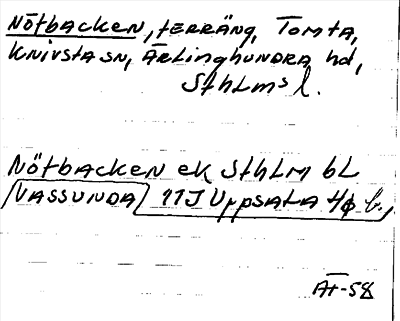 Nötbacken, terräng, Tomta,
Knivsta sn, Ärlinghundra hd,
Sthlms l.
Nötbacken ek Sthlm bL
VASSUNDA 11J Uppsala 4ø b,
ÄT-58